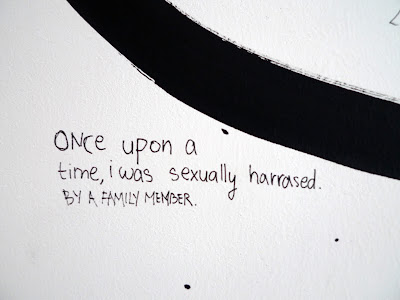 ONce upon a
time, i was sexually harrased.
BY A FAMILY MEMBER.